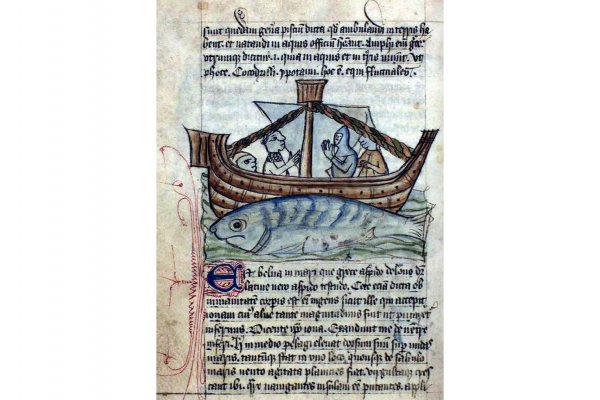 sunt quedam gena pisciu dicta qd ambulandi in terris ha
bent. et natandi in aquis officiu Amphi em grec
dicitur .i. qua in aquis et in tris uiuit. vt
phoce. Cocodrilli. ypotami. hoc e. equi fluctuales.
Est belua in mari que grece aspido delone dr
latine uero aspido testudo. Cete etiam dicta ob
inmanitatem corpis est em ingens sicut ille qui excepit
ionam cui alue tante magnitudinis fuit ut putaret
infernus. Dicente ipo iona. Exaudiuit me de uentre
inferi. h in medio pelagi eleuat dorsum suum sup undas
maris. tantumque stat in uno loco quousque de sabulo
maris uento agitata planicies fiat. cres
cant ibi. nauigantes insulam ee putantes. appli